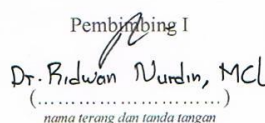 Pembimbing I
Dr. Ridwan Nurdin, MCL
(..............................)
nama terang dan tanda tangan